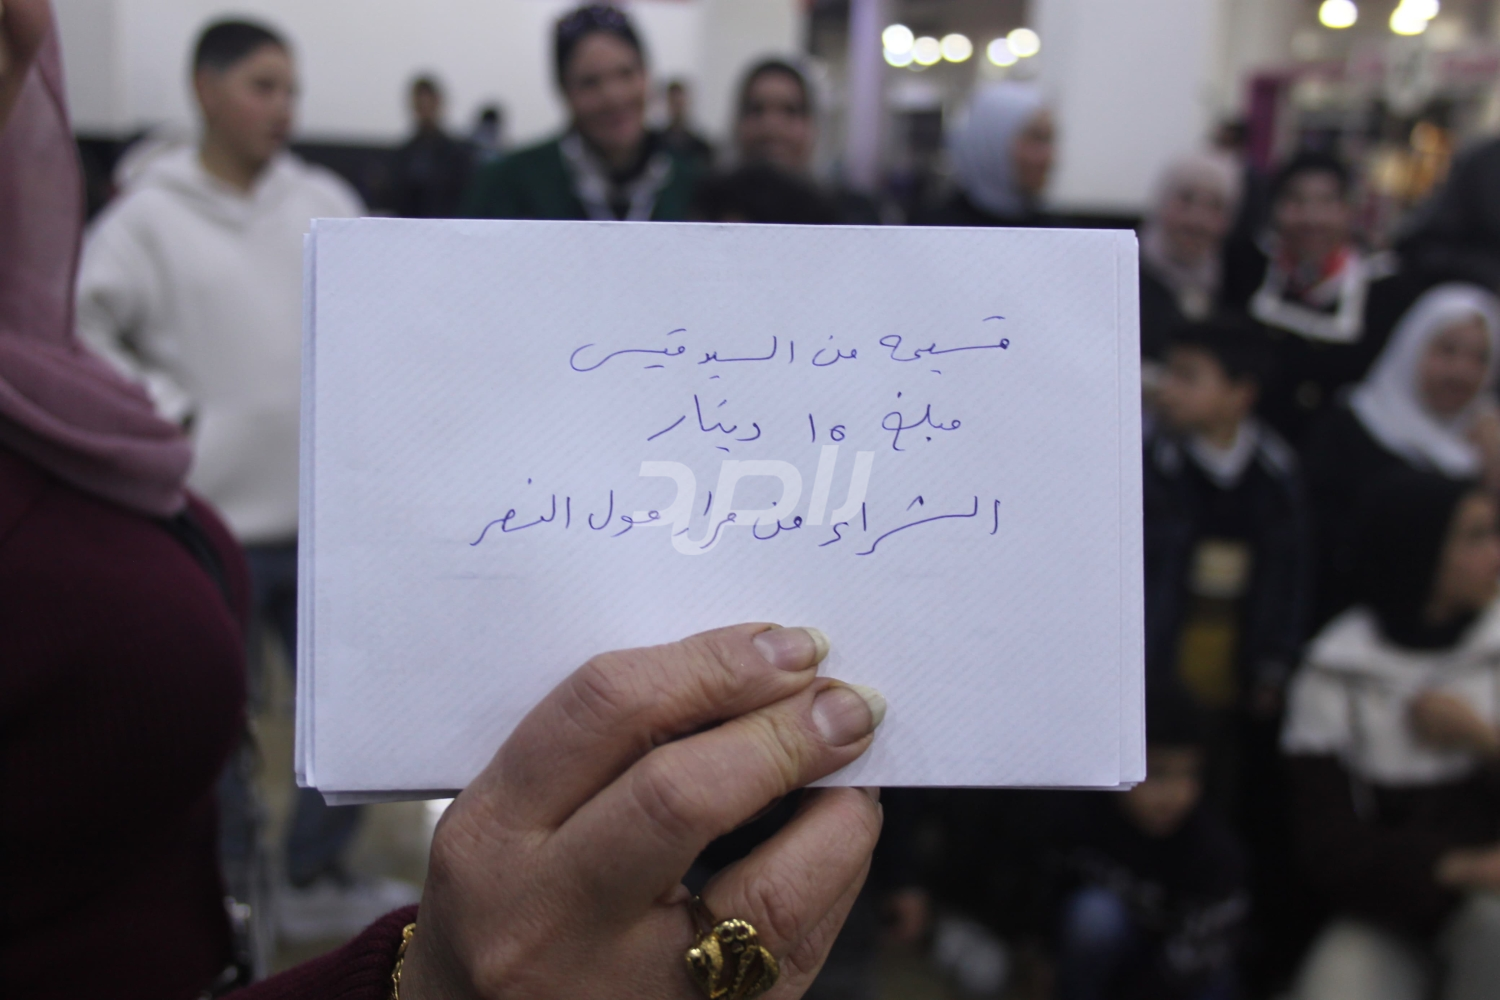 قسيمة من السيد قيس
مبلغ 15 دينار
الشراء من مرار مول النصر